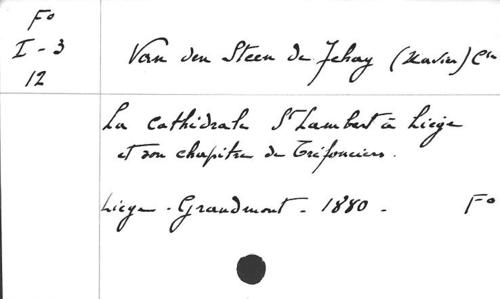 F°
I - 3
12
Van den Steen de Jehay (Xavier) Cte
La Cathédrale St Lambert à Liège
et son chapitre de Tréfonciers.
Liège - Grandmont - 1880 - F°